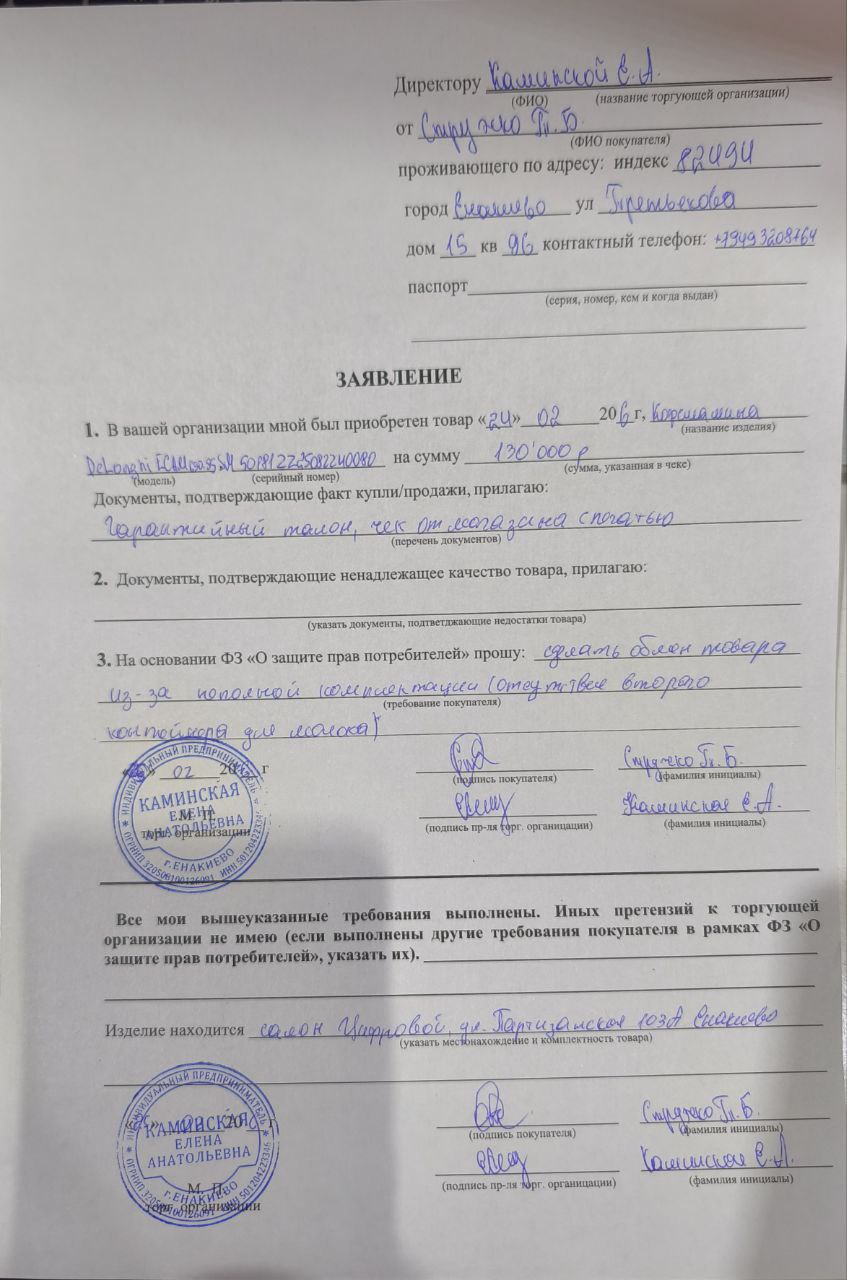 Директору Каминской Е.А.
(ФИО) (название торгующей организации)
от Стружко Т. Б.
(ФИО покупателя)
проживающего по адресу: индекс 82494
город Енакиево ул Третьякова
дом 15 кв 96 контактный телефон: +79493208764
паспорт
(серия, номер, кем и когда выдан)
ЗАЯВЛЕНИЕ
1. В вашей организации мной был приобретен товар «24» 02 206 г, Кофемашина
(название изделия)
DeLonghi на сумму 130'000 р
(модель) (серийный номер) (сумма, указанная в чеке)
Документы, подтверждающие факт купли/продажи, прилагаю:
Гарантийный талон, чек от магазина с печатью
(перечень документов)
2. Документы, подтверждающие ненадлежащее качество товара, прилагаю:
(указать документы, подтветджающие недостатки товара)
3. На основании ФЗ «О защите прав потребителей» прошу: сделать обмен товара
из-за неполной комплектации (отсутствее второго
(требование покупателя)
контейнера для молока)
« » 02 20 г
(подпись покупателя) (фамилия инициалы)
Каминская Е.А.
М. П.
торг. организации
(подпись пр-ля торг. органицации) (фамилия инициалы)
* ИНДИВИДУАЛЬНЫЙ ПРЕДПРИНИМАТЕЛЬ *
КАМИНСКАЯ
ЕЛЕНА
АНАТОЛЬЕВНА
г.ЕНАКИЕВО
ОГРНИП 320508100126091 ИНН 501204223346
Все мои вышеуказанные требования выполнены. Иных претензий к торгующей
организации не имею (если выполнены другие требования покупателя в рамках ФЗ «О
защите прав потребителей», указать их).
Изделие находится салон Цифровой, ул. Партизанская 103А Енакиево
(указать местонахождение и комплектность товара)
20 г
(подпись покупателя) (фамилия инициалы)
Каминская Е.А.
М. П.
торг. организации
(подпись пр-ля торг. органицации) (фамилия инициалы)
* ИНДИВИДУАЛЬНЫЙ ПРЕДПРИНИМАТЕЛЬ *
КАМИНСКАЯ
ЕЛЕНА
АНАТОЛЬЕВНА
г.ЕНАКИЕВО
ОГРНИП 320508100126091 ИНН 501204223346